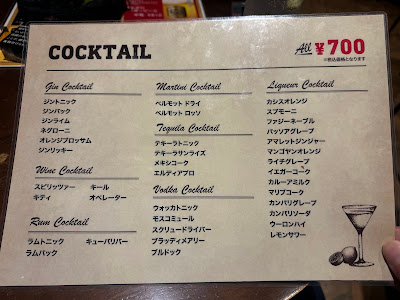 COCKTAIL
All ¥700
※税込価格となります
Gin Cocktail
ジントニック
ジンバック
ジンライム
ネグローニ
オレンジブロッサム
ジンリッキー
Wine Cocktail
スピリッツァー キール
キティ オペレーター
Rum Cocktail
ラムトニック キューバリバー
ラムバック
Martini Cocktail
ベルモット ドライ
ベルモット ロッソ
Tequila Cocktail
テキーラトニック
テキーラサンライズ
メキシコーク
エルディアブロ
Vodka Cocktail
ウォッカトニック
モスコミュール
スクリュードライバー
ブラッディメアリー
ブルドック
Liqueur Cocktail
カシスオレンジ
スプモーニ
ファジーネーブル
パッソアグレープ
アマレットジンジャー
マンゴヤンオレンジ
ライチグレープ
イエガーコーク
カルーアミルク
マリブコーク
カンパリグレープ
カンパリソーダ
ウーロンハイ
レモンサワー